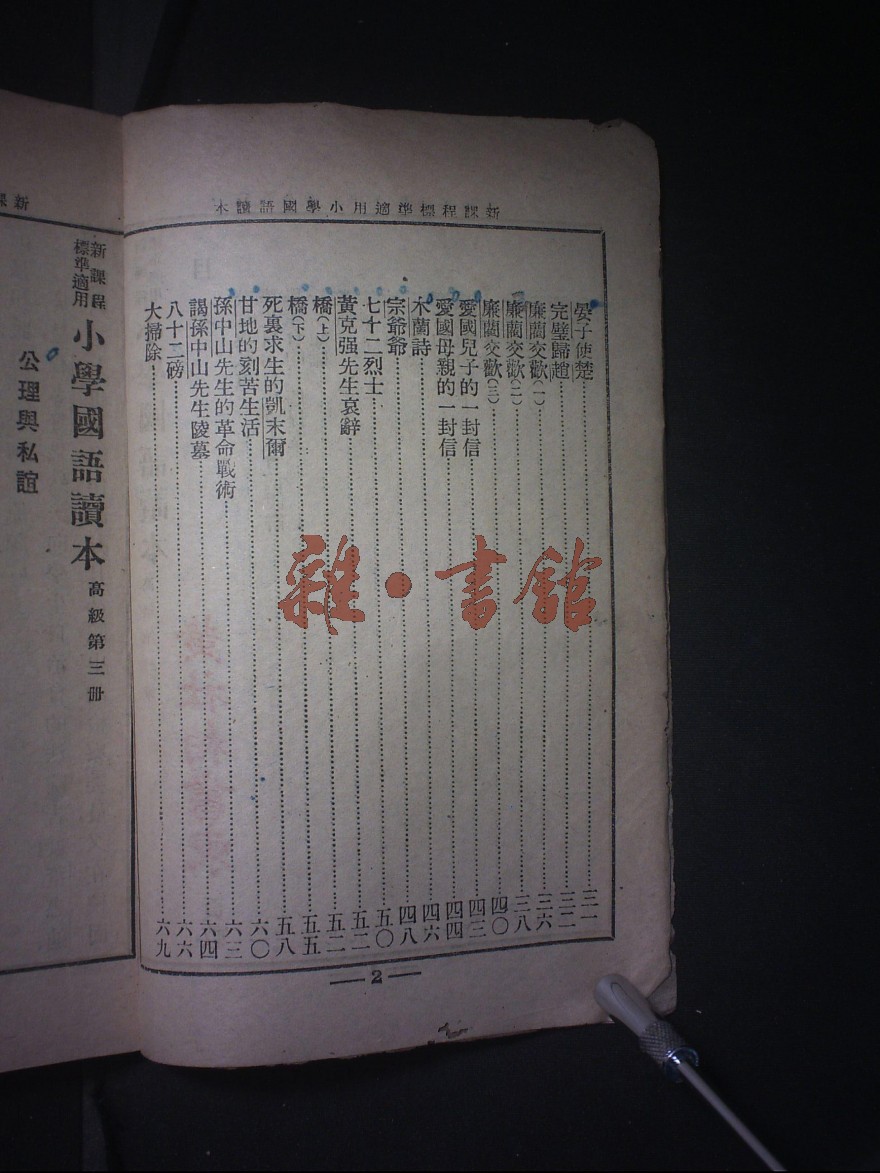 新課程標準適用小學國語讀本
晏子使楚……三一
完璧歸趙……三二
廉藺交歡(一)……三六
廉藺交歡(二)……三八
廉藺交歡(三)……四〇
愛國兒子的一封信……四三
愛國母親的一封信……四四
木蘭詩……四六
宗爺爺……四八
七十二烈士……五〇
黃克强先生哀辭……五二
橋(上)……五二
橋(下)……五五
死裏求生的凱末爾……五八
甘地的刻苦生活……六〇
孫中山先生的革命戰術……六三
謁孫中山先生陵墓……六四
八十二磅……六六
大掃除……六九
2
新課
新課程標準適用 小學國語讀本 高級第三册
公理與私誼
雜·書館